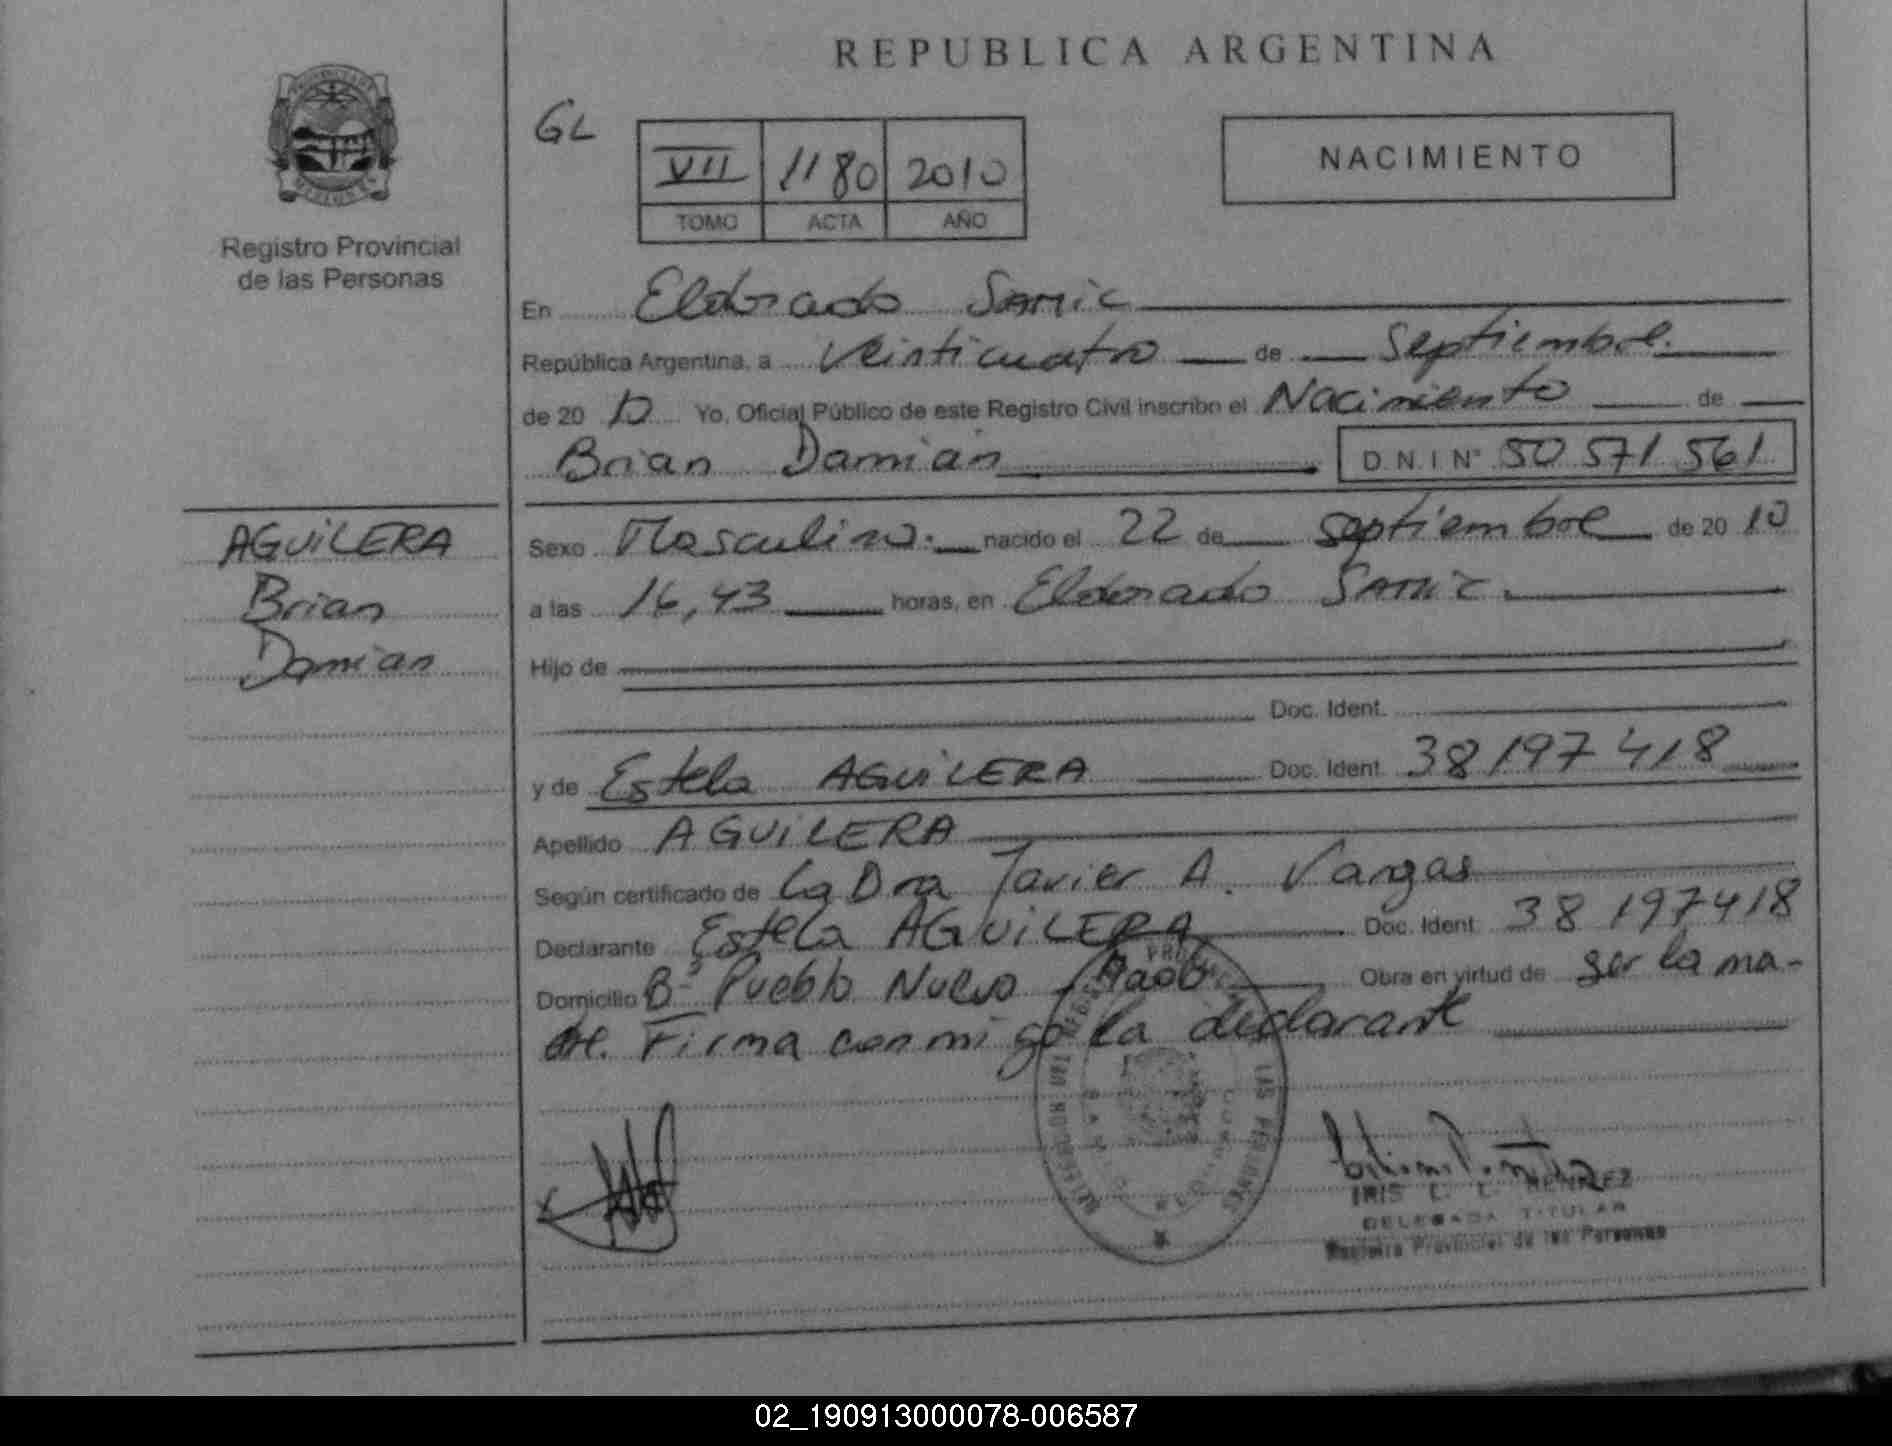 REPUBLICA ARGENTINA
GL
VII 1180 2010
TOMO ACTA AÑO
NACIMIENTO
Registro Provincial
de las Personas
En Eldorado SAMIC
República Argentina, a Veinticuatro de Septiembre.
de 20 10 Yo, Oficial Público de este Registro Civil inscribo el Nacimiento de
Brian Damian D.N.I Nº 50 571 561
AGUILERA
Brian
Damian
Sexo Masculino. nacido el 22 de septiembre de 20 10
a las 16,43 horas, en Eldorado SAMIC.
Hijo de
Doc. Ident.
y de Estela AGUILERA Doc. Ident. 38 197 418
Apellido AGUILERA
Según certificado de La Dra Javier A. Vargas
Declarante Estela AGUILERA Doc. Ident 38 197418
Domicilio Bº Pueblo Nuevo Obra en virtud de ser la ma-
dre. Firma conmigo la declarante
LAS PERSONAS
IRIS
DELEGADA TITULAR
Registro Provincial de las Personas
02_190913000078-006587